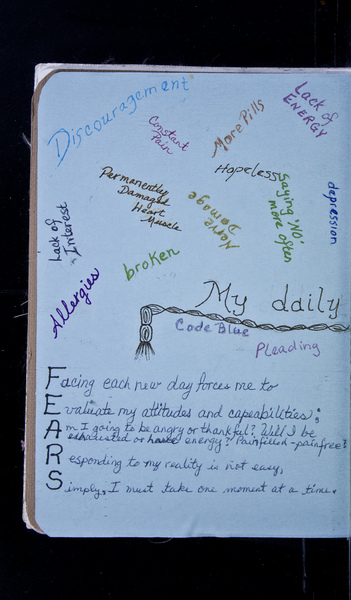 Discouragement
Constant
Pain
More Pills
Lack of
ENERGY
Permanently
Damaged
Heart
Muscle
Hopeless
Nerve
Damage
Saying 'NO'
more often
depression
Lack of
Interest
broken
Allergies
My daily
Code Blue
Pleading
Facing each new day forces me to
Evaluate my attitudes and capeabilities;
Am I going to be angry or thankful? Will I be
exhausted or have energy? Painfilled-painfree?
Responding to my reality is not easy,
Simply, I must take one moment at a time.